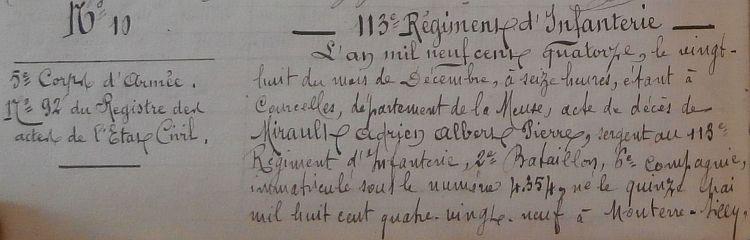 N° 10
5e Corps d'Armée.
N° 92 du Registre des
actes de l'Etat Civil.
113e Régiment d'Infanterie
L'an mil neuf cent quatorze, le vingt-
huit du mois de Décembre, à seize heures, étant à
Courcelles, département de la Meuse, acte de décès de
Mirault Adrien Albert Pierre, sergent au 113e
Régiment d'Infanterie, 2e Bataillon, 6e Compagnie,
immatriculé sous le numéro 4.354, né le quinze Mai
mil huit cent quatre-vingt-neuf à Monterre-Silly,